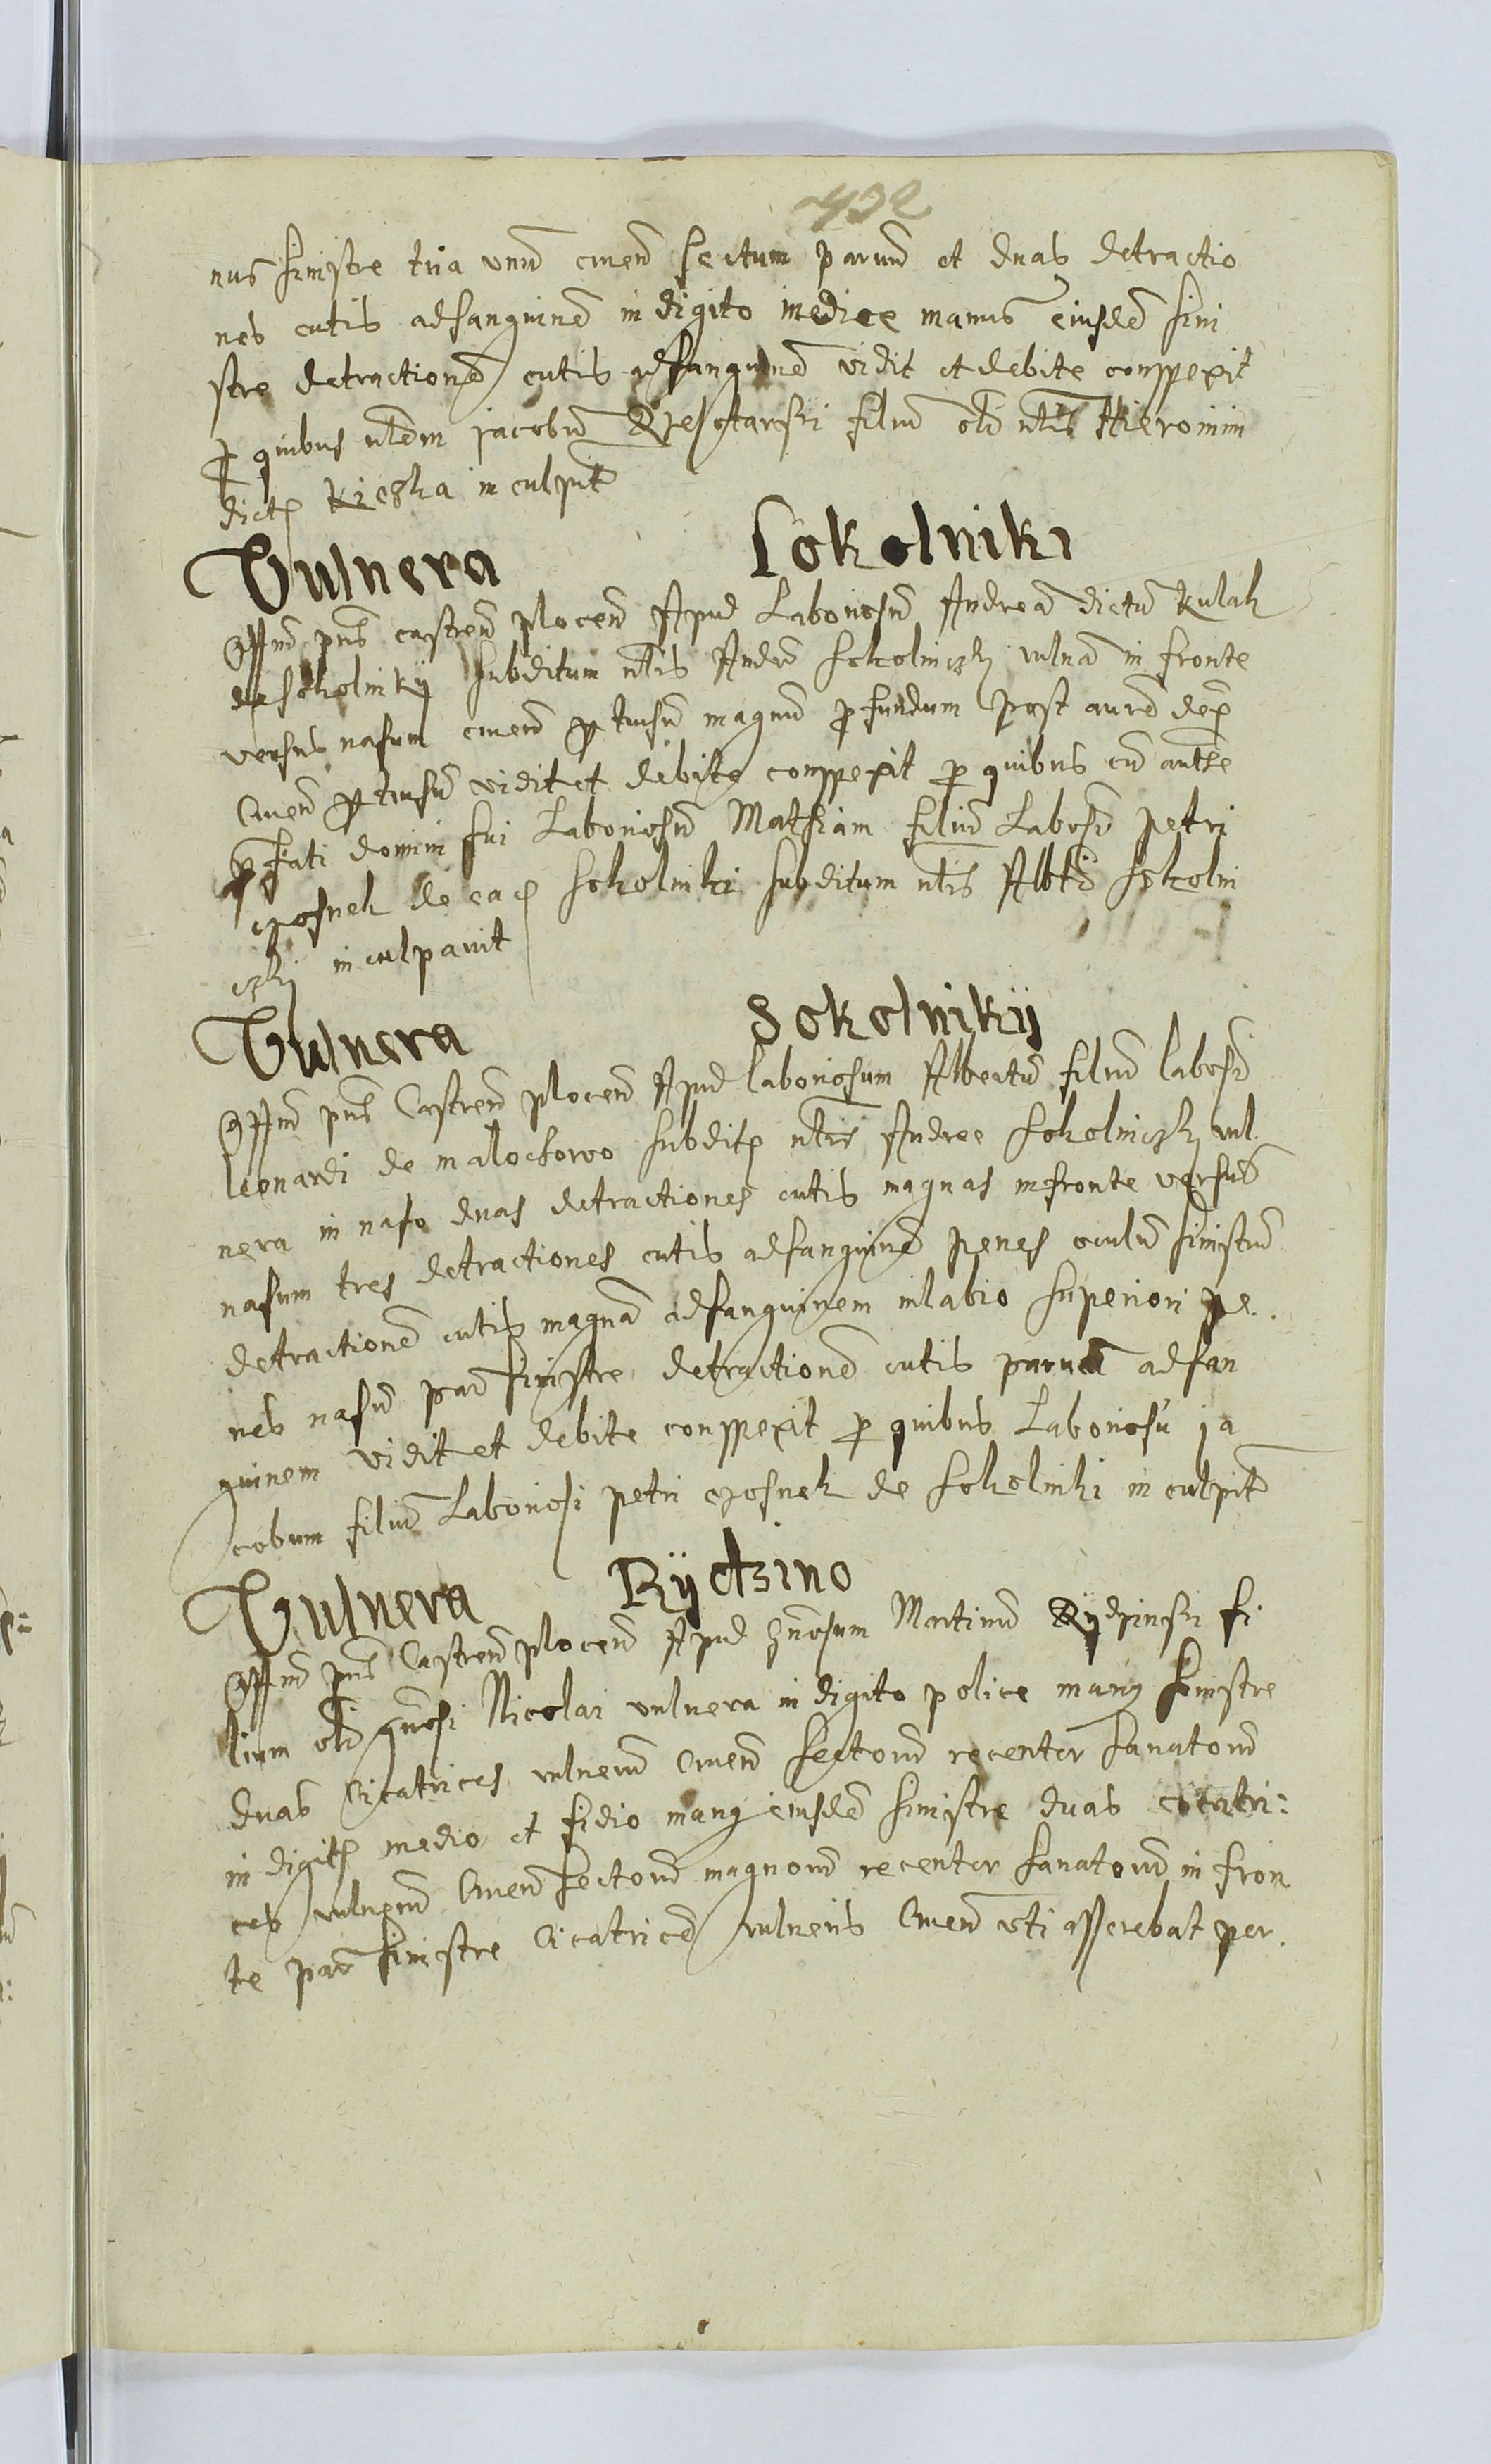 432
nus sinistre tria unũ cruenũ sectum paruũ et duas detractio
nes cutis ad sanguinẽ in digito medice manus eiusdẽ sini
stre detractionẽ cutis ad sanguinẽ vidit et debite conspexit
p quibus nblem Jacobũ filiũ olĩ nblis Hieronimi
dictj Kiczka inculpit
Vulnera Sokolniki
Mĩr pñs castreñ ploceñ Apud Laboriosũ Andreã dictũ Kulak
de Sokolnikÿ subditum nblis Andree Sokolniczkj vulnã in fronte
versus nasum cruenũ ptusũ magnũ pfundum post aurẽ dex
Cruenũ ptusũ vidit et debite conspexit p quibus cũ authe
pfati domini sui Laboriosũ Mathiam filiũ Labosi petri
czosnek de eadẽ Sokolniki subditum nblis Albti Sokolni
czkj inculpauit
Vulnera Sokolnikÿ
Mĩr pñs Castreñ ploceñ Apud laboriosum Albertũ filiũ labosi
leonardi de malochowo subditj nblis Andree Sokolniczkj vul
nera in naso duas detractiones cutis magnas in fronte versus
nasum tres detractiones cutis ad sanguinẽ penes oculũ sinistrũ
detractionẽ cutis magnã ad sanguinem in labio superiori pe
nes nasũ par sinistre detractionẽ cutis paruã ad san
guinem vidit et debite conspexit p quibus Laboriosũ Ja
cobum filiũ Laboriosi petri czosnek de Sokolniki inculpit
Vulnera Rÿctzino
Mĩr pñs Castreñ ploceñ Apud gnosum Martinũ Rÿdzinski fi
lium olĩ gnosi Nicolai vulnera in digito police manus sinistre
duas Cicatrices vulnerũ Cruenũ sectorũ recenter sanatorũ
in digitj medio et fidio manus eiusdẽ sinistre duas cicatri:
ces vulnerũ Cruenũ sectorũ magnorũ recenter sanatorũ in fron
te par sinistre Cicatricẽ vulneris Cruenũ vti asserebat per